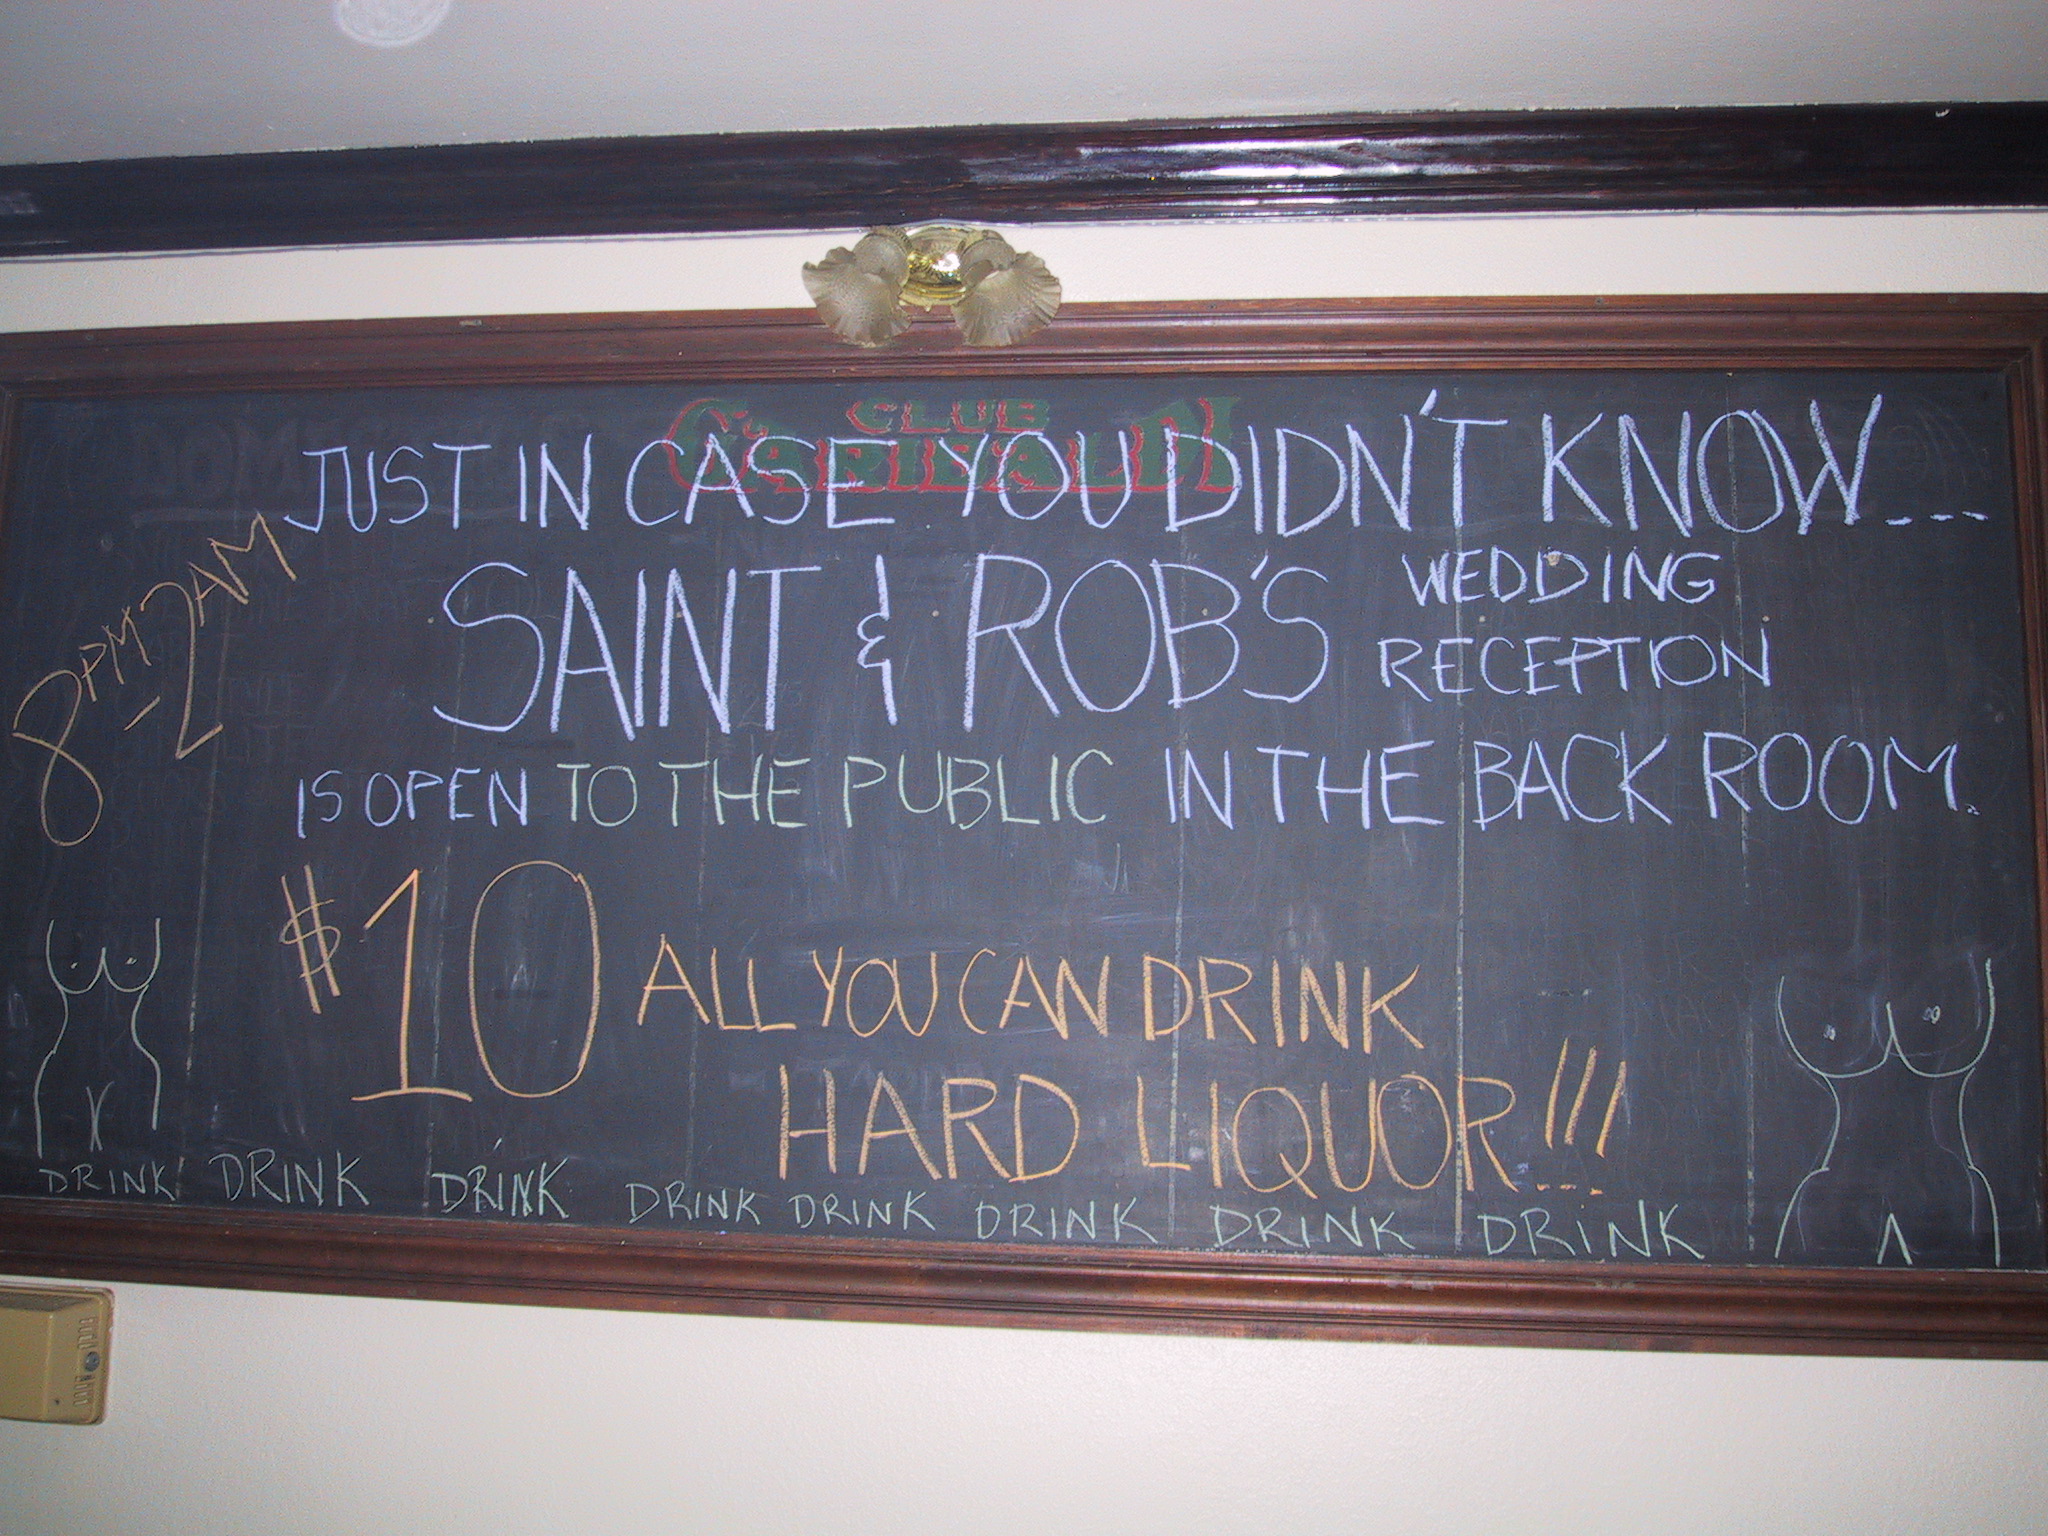 CLUB
GARIBALDI
JUST IN CASE YOU DIDN'T KNOW...
8PM-2AM
SAINT & ROB'S WEDDING
RECEPTION
IS OPEN TO THE PUBLIC IN THE BACK ROOM.
$10 ALL YOU CAN DRINK
HARD LIQUOR!!!
DRINK DRINK DRINK DRINK DRINK DRINK DRINK DRINK